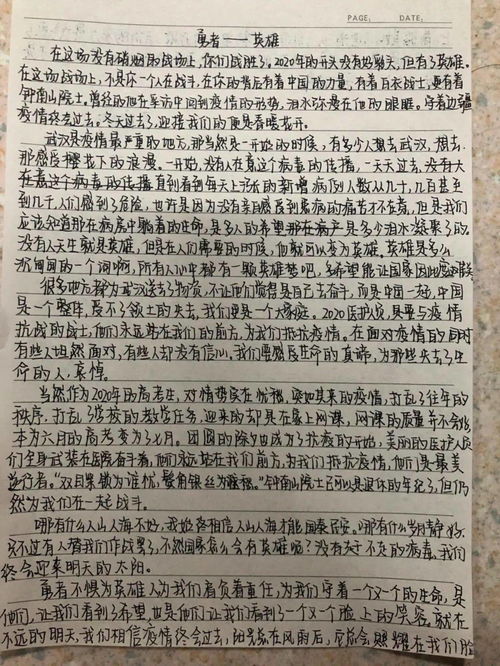 PAGE: DATE:
勇者——英雄
在这场没有硝烟的战场上,你们战胜了。2020年的开头没有烟聊天,但有了英雄。
在这场战场上,不是你一个人在战斗,在你的背后有着中国的力量,有着白衣战士,更有着
钟南山院士,曾经的他在采访中问到疫情的形势,泪水弥漫在他的眼眶。守着边疆
疫情终会过去。冬天过了,迎接我们的便是春暖花开。
武汉是疫情最严重的地方,那当然是一开始的时候,有多少人想去武汉,想去
那感受樱花下的浪漫。一开始,没有人在意这个病毒的传播,一天天过去,没有太
在意这个病毒的传播直到看到每天上涨的新增病例人数从几十,几百甚至
到几千,人们感到了危险,也许是因为没有亲自感受到患病的痛苦才不在意,但是我们
应该知道那在病房中躺着的生命,是多人的希望那在病产是多少泪水结果了的。
没有人天生就是英雄,但是在人们需要的时候,他就可以变为英雄。英雄是多么
的一个词啊,所有人心中都有一颗英雄梦吧,多希望能让国家因此
很多地方都为武汉送去了物资,不让他们觉得是自己去奋斗,而是中国一起,中国
是一个整体,受不了领土的失去,我们便是一个大家庭。2020医护人员,是要与疫情
抗战的战士,他们永远站在我们的前方,为我们抵抗疫情。在面对疫情的同时
有些人坦然面对,有些人却没有信心,我们要感受生命的真谛,为那些失去了生
命的人,哀悼。
当然作为2020年的高考生,对情势实在忧愁,突如其来的疫情,打乱了往年的
秩序,打乱了学校的教学任务,迎来的却是在家上网课,网课的质量并不会
本为六月的高考变为了七月。团圆的除夕也成为了抗疫的开始,美丽的医护人员
们全身武装在医院奋斗着,他们永远站在我们前方,为我们抵抗疫情,他们是最美
逆行者。“双目紧锁为谁忧,鬓角银丝为谁愁。”钟南山院士已可以是退休的年纪了,但仍
然为我们在一起战斗。
哪有什么人山人海不好,我始终相信人山人海才能国泰民安。哪有什么岁月静好
只不过有人替我们作战罢了,不然国家怎么会有英雄呢?没有关于不灭的病毒,我们
终会迎来明天的太阳。
勇者不惧为英雄人为我们肩负着重任,为我们守着一个又一个的生命,是
他们,让我们看到了希望,也是他们让我们看到了一个又一个脸上的笑容。就在
不远的明天,我们相信疫情终会过去,阳光总在风雨后,它总会照耀在我们脸